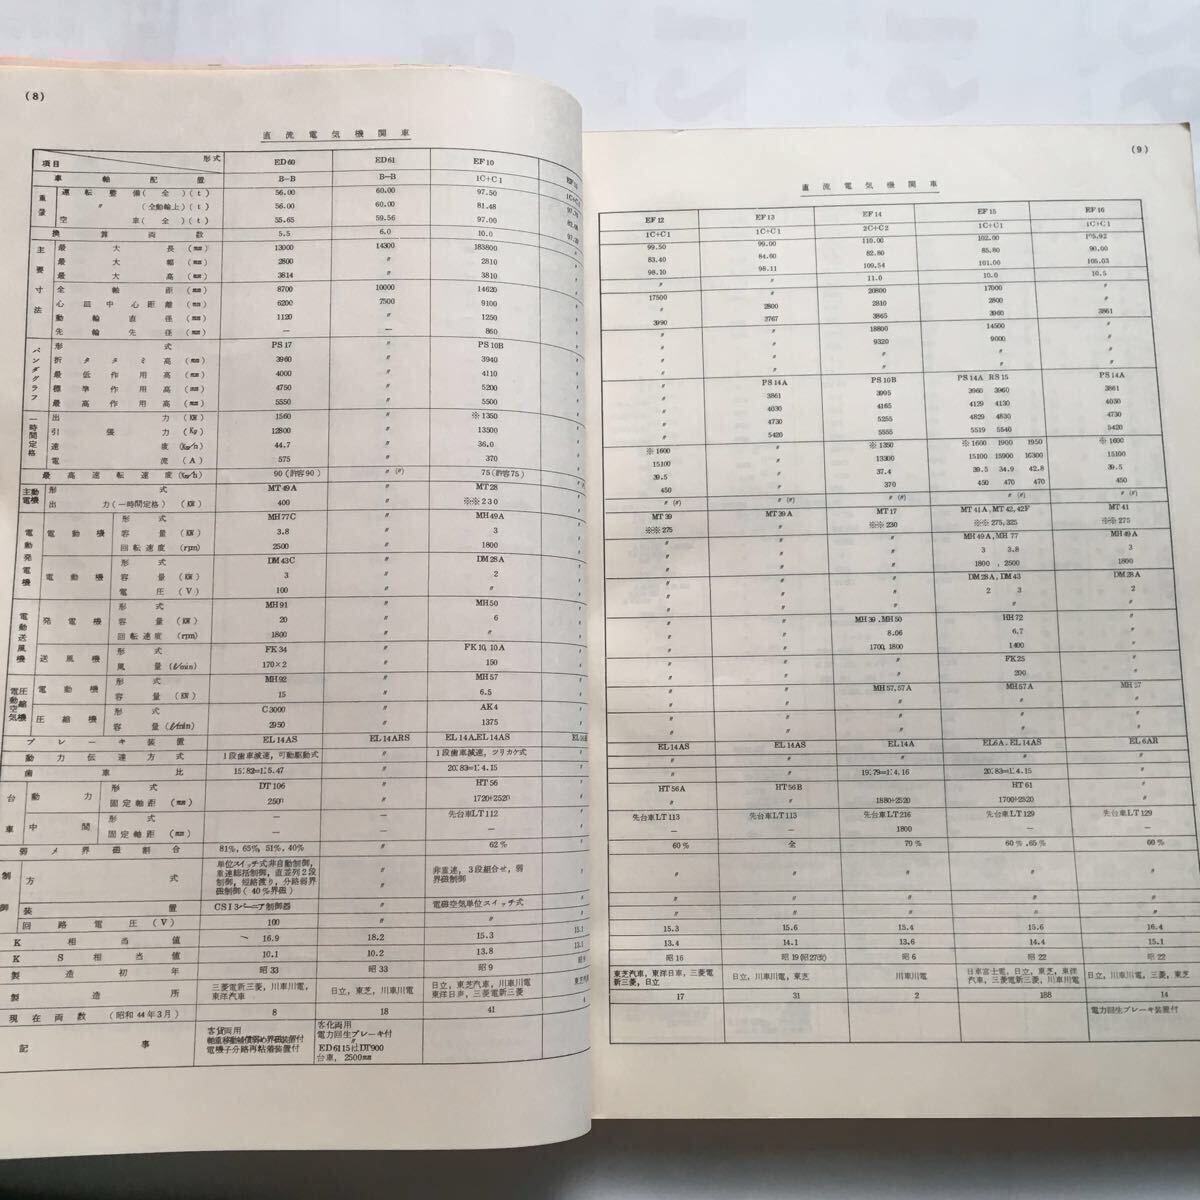 (8)
直流電気機関車
項目 形式 ED60 ED61 EF10
車軸配置 B−B B−B 1C+C1
重量 運転整備(全)(t) 56.00 60.00 97.50
〃 (全動輪上)(t) 56.00 60.00 81.48
空車(全)(t) 55.65 59.56 97.00
換算両数 5.5 6.0 10.0
主要寸法 最大長(mm) 13000 14300 183800
最大幅(mm) 2800 〃 2810
最大高(mm) 3814 〃 3810
全軸距(mm) 8700 10000 14620
心皿中心距離(mm) 6200 7500 9100
動輪直径(mm) 1120 〃 1250
先輪先径(mm) − − 860
パンダグラフ 形式 PS17 〃 PS10B
折タタミ高(mm) 3960 〃 3940
最低作用高(mm) 4000 〃 4110
標準作用高(mm) 4750 〃 5200
最高作用高(mm) 5550 〃 5500
一時間定格 出力(KW) 1560 〃 ※1350
引張力(Kg) 12800 〃 13500
速度(Km/h) 44.7 〃 36.0
電流(A) 575 〃 370
最高速転速度(Km/h) 90(許容90) 〃(〃) 75(許容75)
主動電機 形式 MT49A 〃 MT28
出力(一時間定格)(KW) 400 〃 ※※230
電動発電機 電動機 形式 MH77C 〃 MH49A
容量(KW) 3.8 〃 3
回転速度(rpm) 2500 〃 1800
電動機 形式 DM43C 〃 DM28A
容量(KW) 3 〃 2
電圧(V) 100 〃 〃
電動送風機 発電機 形式 MH91 〃 MH50
容量(KW) 20 〃 6
回転速度(rpm) 1800 〃 〃
送風機 形式 FK34 〃 FK10,10A
風量(ℓ/min) 170×2 〃 150
電動空気圧縮機 電動機 形式 MH92 〃 MH57
容量(KW) 15 〃 6.5
圧縮機 形式 C3000 〃 AK4
容量(ℓ/min) 2950 〃 1375
ブレーキ装置 EL14AS EL14ARS EL14A,EL14AS
動力伝達方式 1段歯車減速,可動駆動式 〃 1段歯車減速,ツリカケ式
歯車比 15:82=1:5.47 〃 20:83=1:4.15
台車 動力 形式 DT106 〃 HT56
固定軸距(mm) 2500 〃 1720+2520
中間 形式 − − 先台車LT112
固定軸距(mm) − − −
弱メ界磁割合 81%,65%,51%,40% 〃 62%
制御 方式 単位スイッチ式非自動制御,重連総括制御,直並列2段制御,短絡渡り,分路弱界磁制御(40%界磁) 〃 非重連,3段組合せ,弱界磁制御
装置 CS13バーニア制御器 〃 電磁空気単位スイッチ式
回路電圧(V) 100 〃 〃
K相当値 16.9 18.2 15.3
KS相当値 10.1 10.2 13.8
製造初年 昭33 昭33 昭9
製造所 三菱電新三菱,川車川電東洋汽車 日立,東芝,川車川電 日立,東芝汽車,川車川電東洋日車,三菱電新三菱
現在両数(昭和44年3月) 8 18 41
記事 客貨両用
軸重移動補償弱め界磁装置付
電機子分路再粘着装置付
客化両用
電力回生ブレーキ付
〃
ED6115はDT900
台車,2500mm
(9)
直流電気機関車
EF12 EF13 EF14 EF15 EF16
1C+C1 1C+C1 2C+C2 1C+C1 1C+C1
99.50 99.00 110.00 102.00 105.92
83.40 84.60 82.80 85.80 90.00
98.10 98.11 109.54 101.00 105.03
〃 〃 11.0 10.0 10.5
17500 〃 20800 17000 〃
〃 2800 2810 2800 〃
3990 3767 3865 3960 3861
〃 〃 18800 14500 〃
〃 〃 9320 9000 〃
〃 〃 〃 〃 〃
〃 〃 〃 〃 〃
〃 PS14A PS10B PS14A RS15 PS14A
〃 3861 3995 3960 3960 3861
〃 4030 4165 4129 4130 4030
〃 4730 5255 4829 4830 4730
〃 5420 5555 5519 5540 5420
※1600 〃 ※1350 ※1600 1900 1950 ※1600
15100 〃 13300 15100 15900 16300 15100
39.5 〃 37.4 39.5 34.9 42.8 39.5
450 〃 370 450 470 470 450
〃(〃) 〃(〃) 〃(〃) 〃(〃) 〃(〃)
MT39 MT39A MT17 MT41A,MT42,42F MT41
※※275 〃 ※※230 ※※275,325 ※※275
〃 〃 〃 MH49A,MH77 MH49A
〃 〃 〃 3 3.8 3
〃 〃 〃 1800,2500 1800
〃 〃 〃 DM28A,DM43 DM28A
〃 〃 〃 2 3 2
〃 〃 〃 〃 〃
〃 〃 MH39.MH50 HH72 〃
〃 〃 8.06 6.7 〃
〃 〃 1700,1800 1400 〃
〃 〃 〃 FK25 〃
〃 〃 〃 200 〃
〃 〃 MH57,57A MH57A MH57
〃 〃 〃 〃 〃
〃 〃 〃 〃 〃
〃 〃 〃 〃 〃
EL14AS EL14AS EL14A EL6A.EL14AS EL6AR
〃 〃 〃 〃 〃
〃 〃 19:79=1:4.16 20:83=1:4.15 〃
HT56A HT56B 〃 HT61 〃
〃 〃 1880+2520 1700+2520 〃
先台車LT113 先台車LT113 先台車LT216 先台車LT129 先台車LT129
− − 1800 − −
60% 全 70% 60%.65% 60%
〃 〃 〃 〃 〃
〃 〃 〃 〃 〃
〃 〃 〃 〃 〃
15.3 15.6 15.4 15.6 16.4
13.4 14.1 13.6 14.4 15.1
昭16 昭19(昭27改) 昭6 昭22 昭22
東芝汽車,東洋日車,三菱電新三菱,日立 日立,川車川電,東芝 川車川電 日車富士電,日立,東芝,東洋汽車,三菱電新三菱,川車川電 日立,川車川電,三菱,東芝
17 31 2 188 14
電力回生ブレーキ装置付